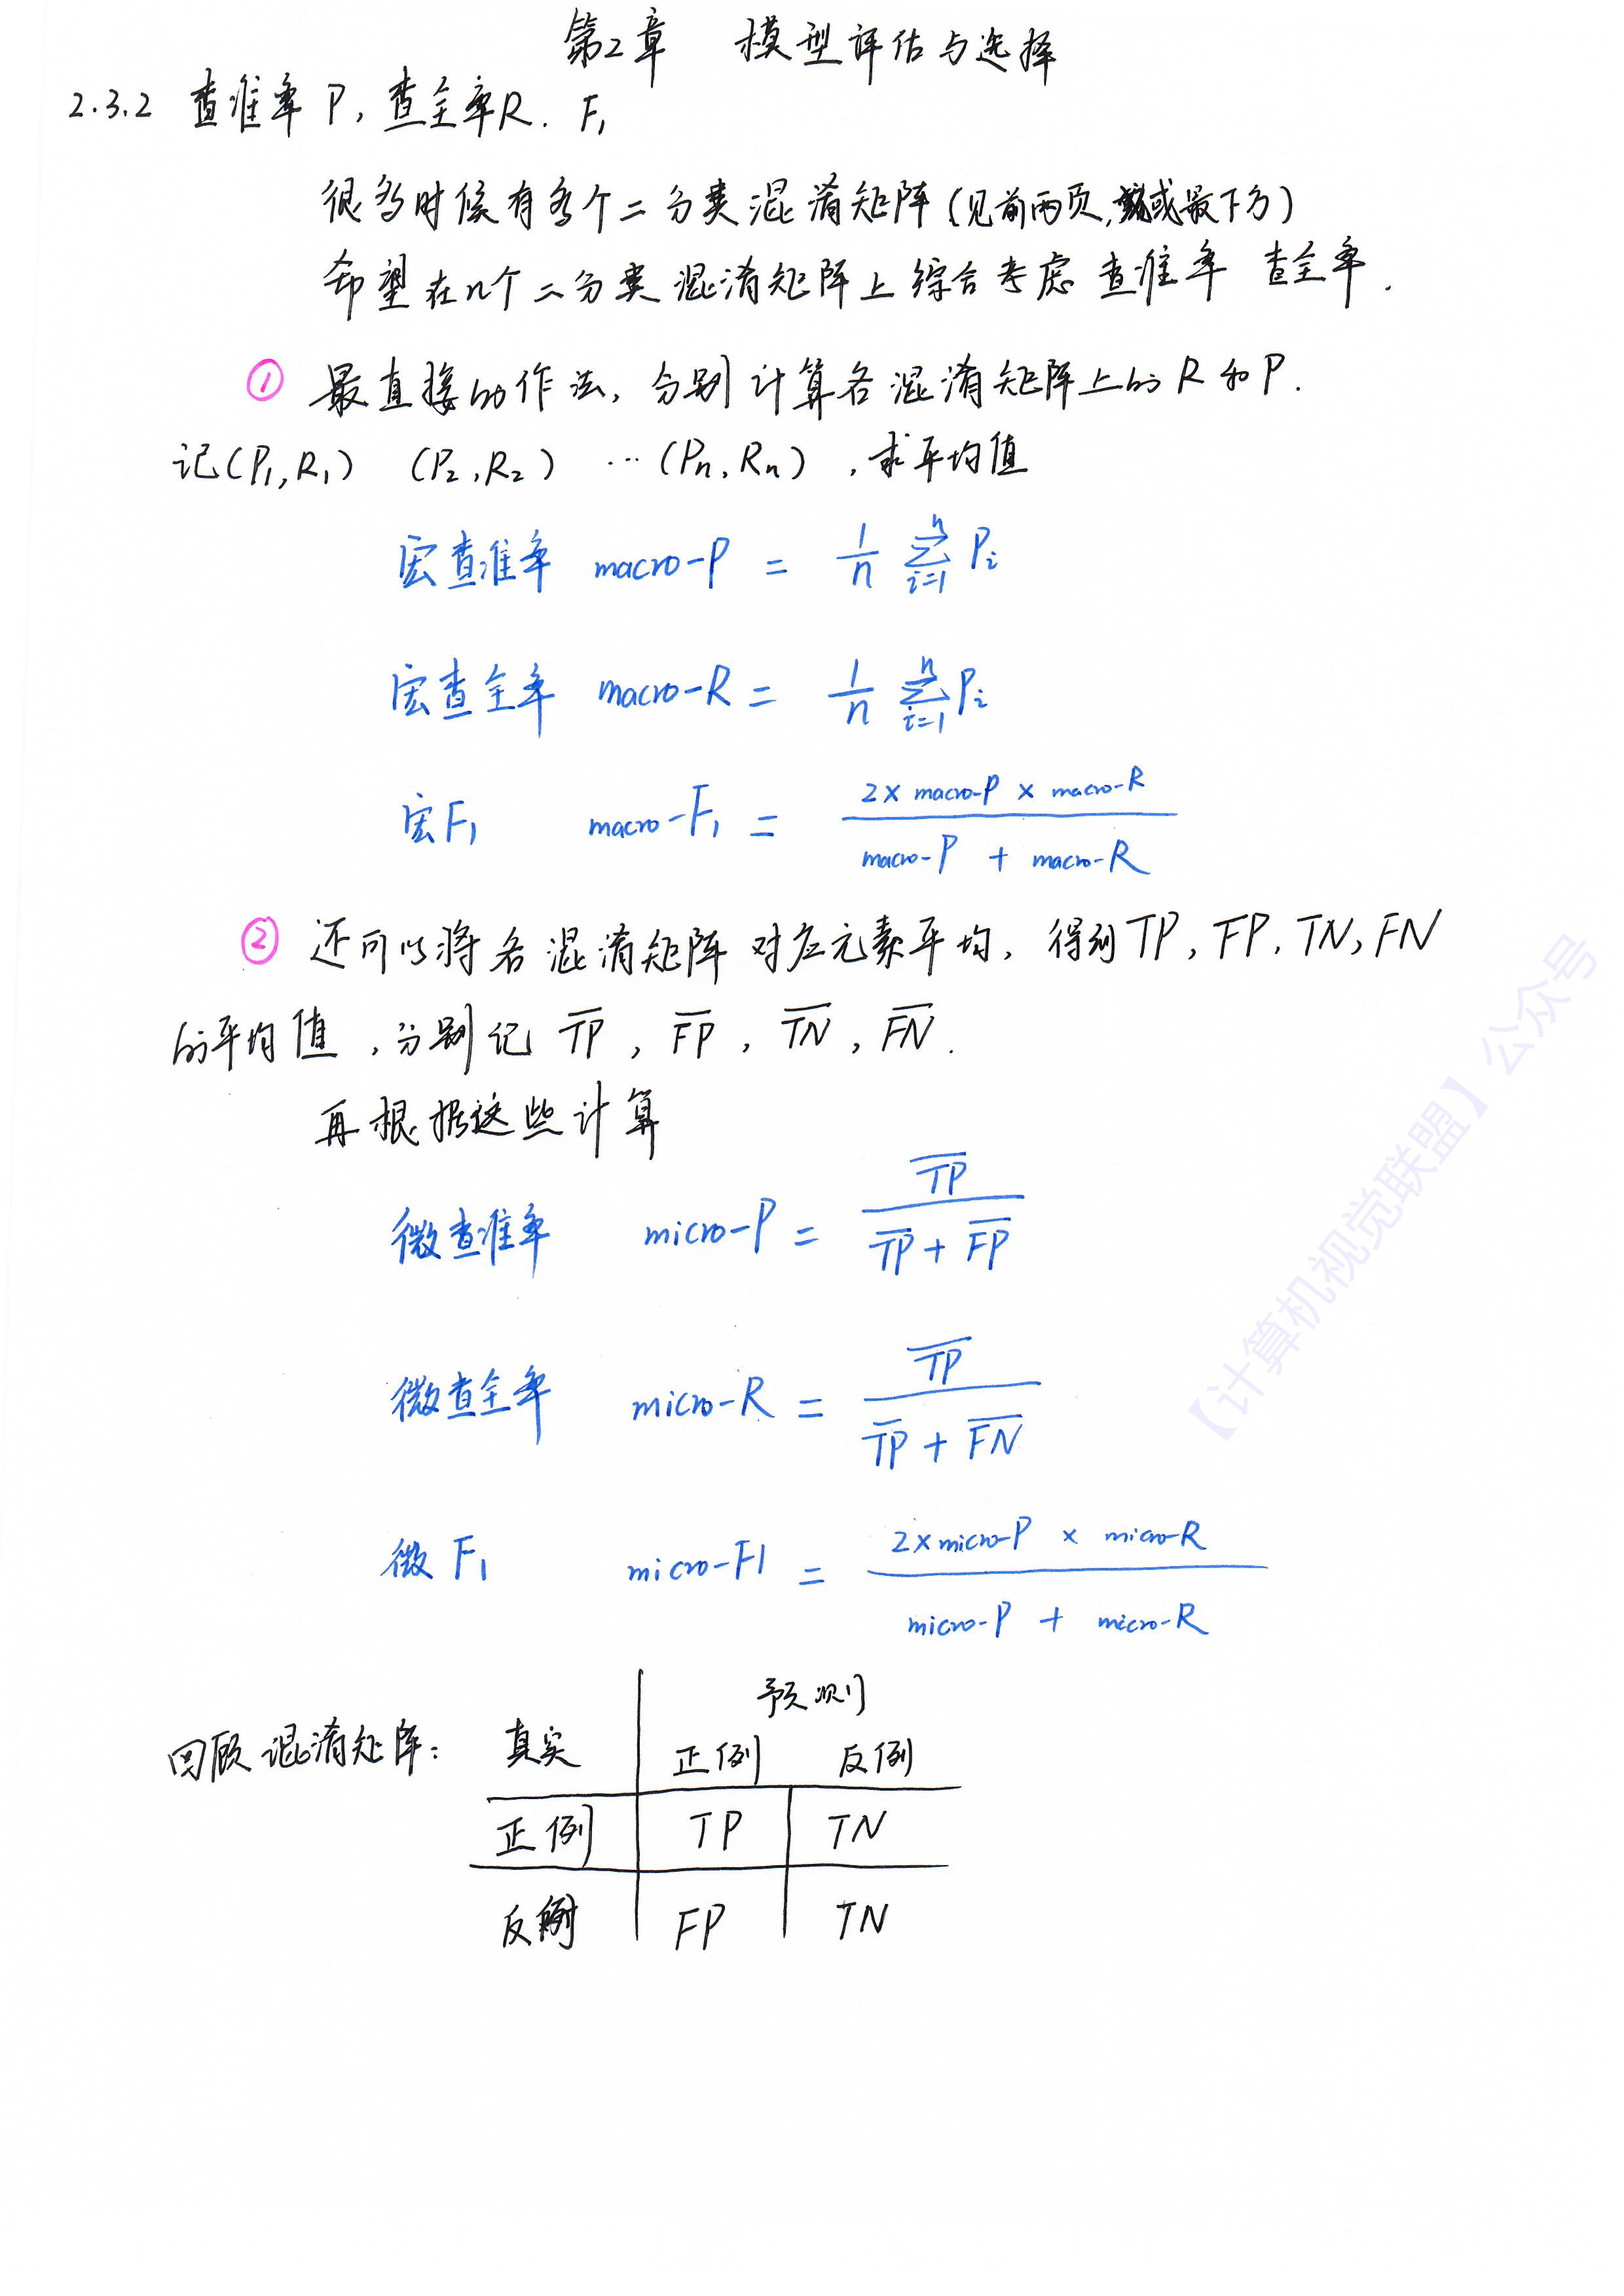 第2章 模型评估与选择
2.3.2 查准率 P, 查全率R. F₁
很多时候有多个二分类混淆矩阵(见前两页,或最下方)
希望在n个二分类混淆矩阵上综合考虑 查准率 查全率.
① 最直接的作法, 分别计算各混淆矩阵上的 R 和 P.
记(P₁,R₁) (P₂,R₂) ···(Pn,Rn) ,求平均值
宏查准率 macro-P = 1/n Σ(i=1→n) Pᵢ
宏查全率 macro-R = 1/n Σ(i=1→n) Pᵢ
宏F₁ macro-F₁ = (2× macro-P × macro-R) / (macro-P + macro-R)
② 还可以将各混淆矩阵对应元素平均, 得到TP, FP, TN, FN
的平均值 ,分别记 T̅P̅ , F̅P̅ , T̅N̅ , F̅N̅ .
再根据这些计算
微查准率 micro-P = T̅P̅ / (T̅P̅ + F̅P̅)
微查全率 micro-R = T̅P̅ / (T̅P̅ + F̅N̅)
微 F₁ micro-F1 = (2×micro-P × micro-R) / (micro-P + micro-R)
预测
回顾混淆矩阵: 真实 正例 反例
正例 TP TN
反例 FP TN
【计算机视觉联盟】公众号